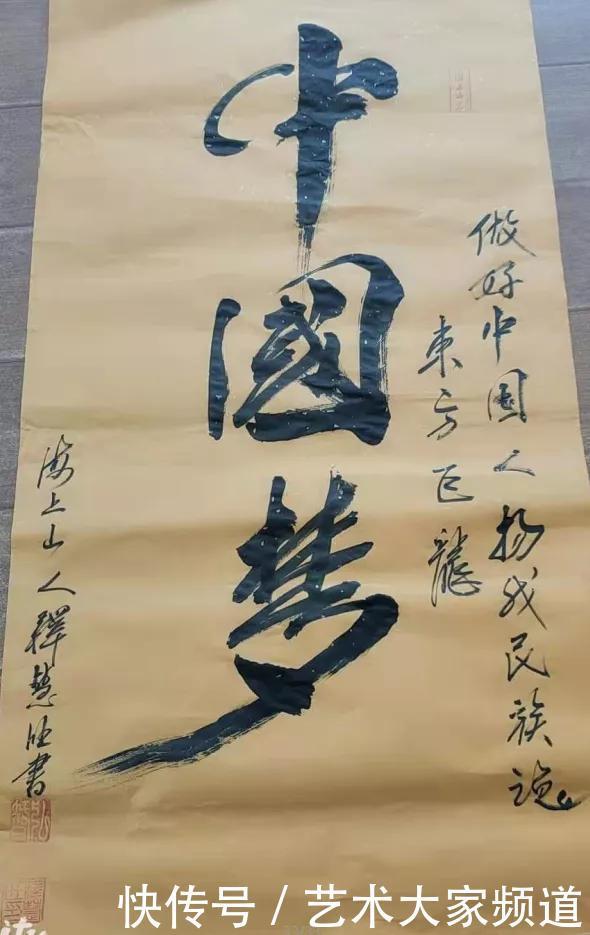 做好中国人扬我民族魂
東方巨龍
中國梦
海上山人釋慧書
快传号/艺术大家频道